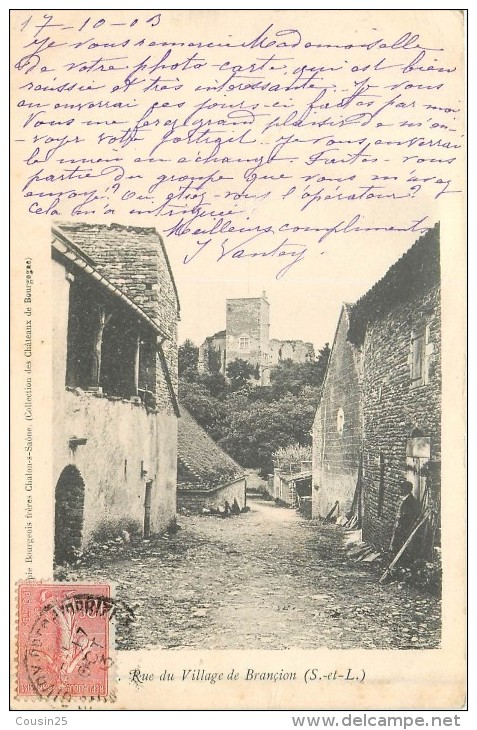 17-10-03
Je vous remercie Mademoiselle
de votre photo carte, qui est bien
réussie et très intéressante. Je vous
en enverrai ces jours-ci faites par moi
Vous me ferez grand plaisir de m'en-
-voyer votre portrait. Je vous enverrai
le mien en échange. Faites-vous
partie du groupe que vous m'avez
envoyé? Ou étiez-vous l'opérateur?
Cela m'a intriguée!
Meilleurs compliments
J Vantey
Bourgeois frères Chalon-s-Saône. (Collection des Châteaux de Bourgogne)
Rue du Village de Brançion (S.-et-L.)
Cousin25
http://www.delcampe.net